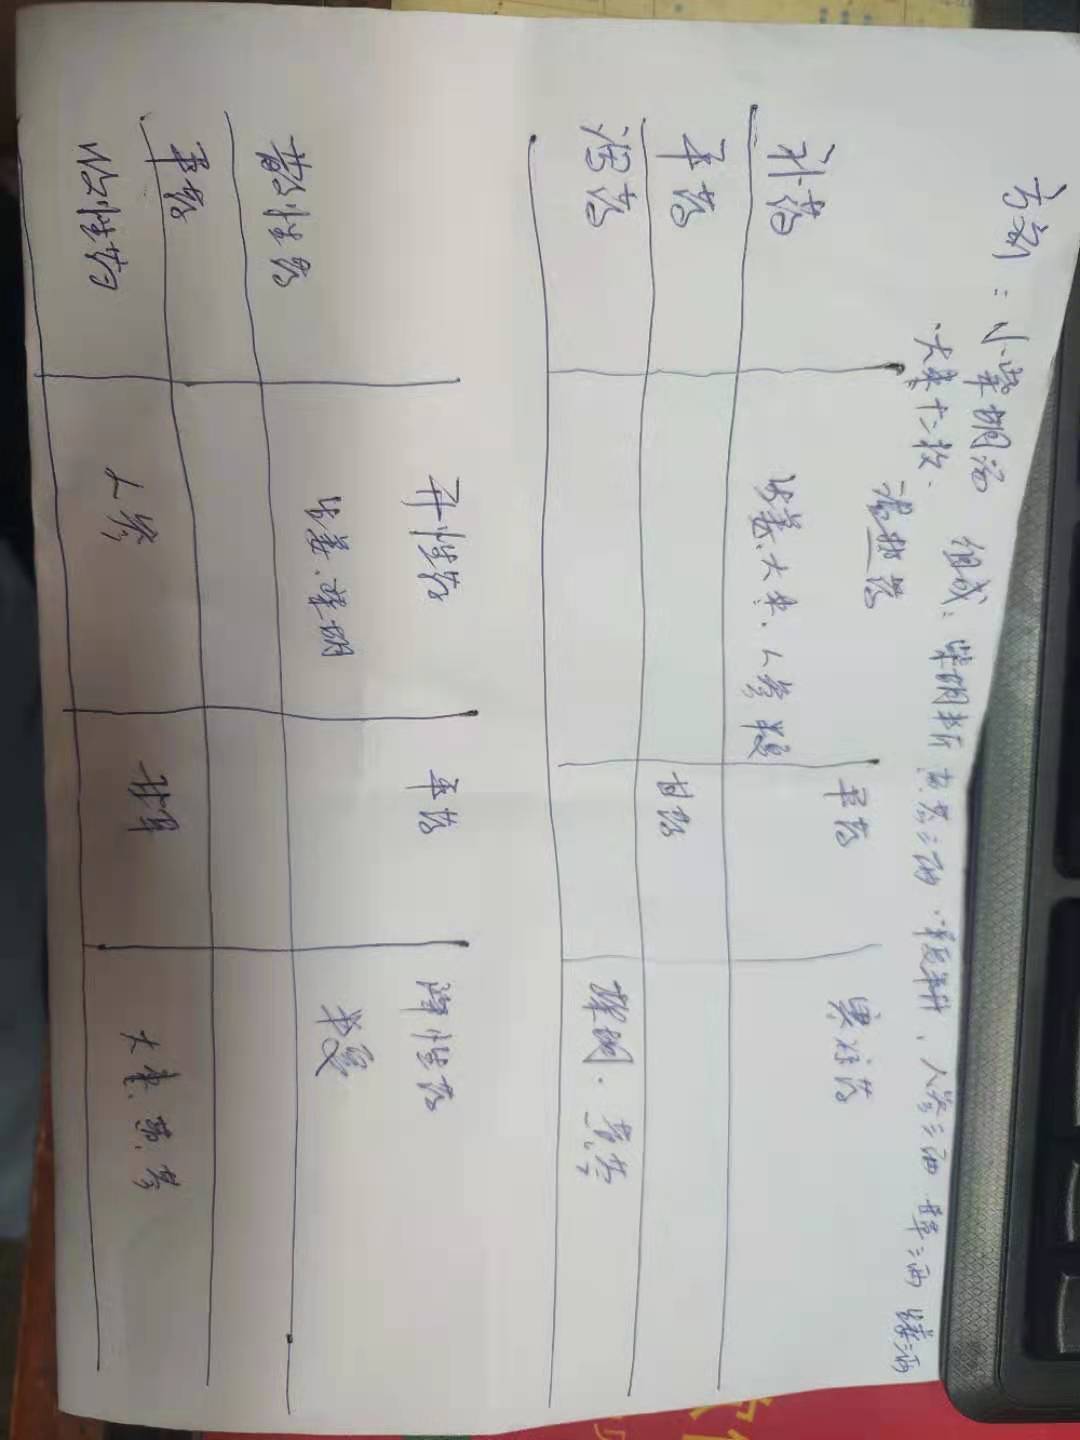 方剂：小柴胡汤 组成：柴胡半斤 黄芩三两 半夏半升、人参三两 甘草三两 生姜三两
大枣十二枚.
温热药 平药 寒凉药
补药 生姜.大枣.人参 半夏
平药 甘
泻药 柴胡.黄芩
升性药 平药 降性药
生姜.柴胡 半夏
平药
人参 甘草 大枣.黄芩